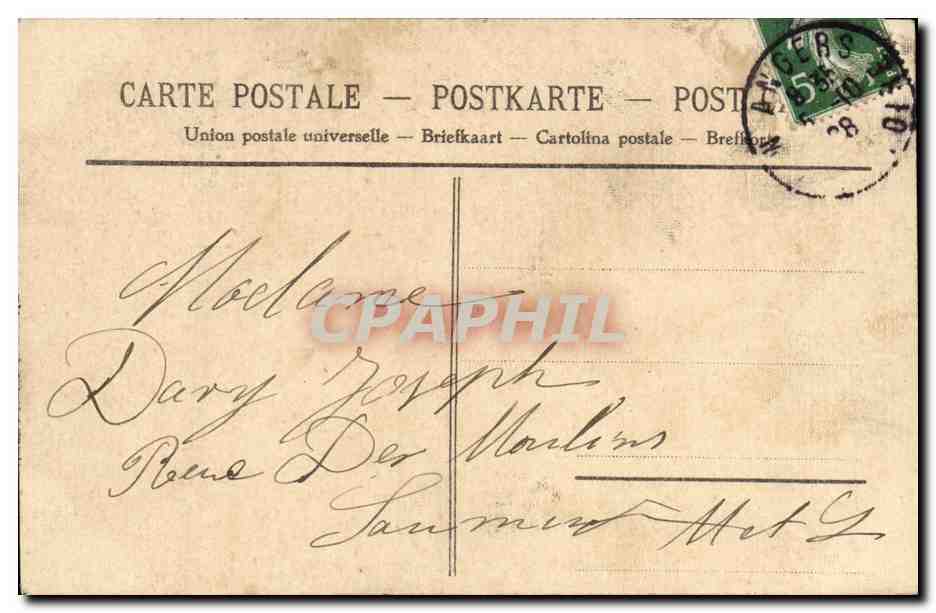 CARTE POSTALE — POSTKARTE — POST
Union postale universelle — Briefkaart — Cartolina postale — Brefkort
ANGERS
8 35
10
5
CPAPHIL
Madame
Davy Joseph
Rue Des Moulins
Saumur M et L